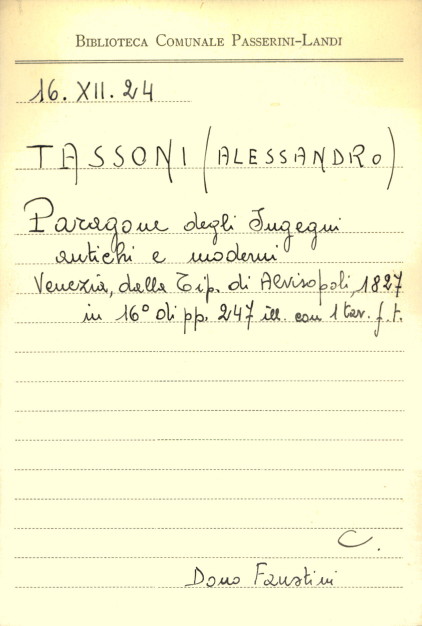 BIBLIOTECA COMUNALE PASSERINI-LANDI
16. XII. 24
TASSONI (ALESSANDRO)
Paragone degli Ingegni
antichi e moderni
Venezia, dalla Tip. di Alvisopoli, 1827
in 16° di pp. 247 ill. con 1 tav. f.t.
C.
Dono Faustini